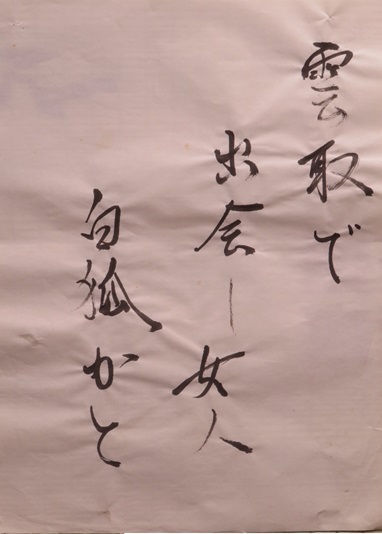 雲取で
出会し女人
白狐かと